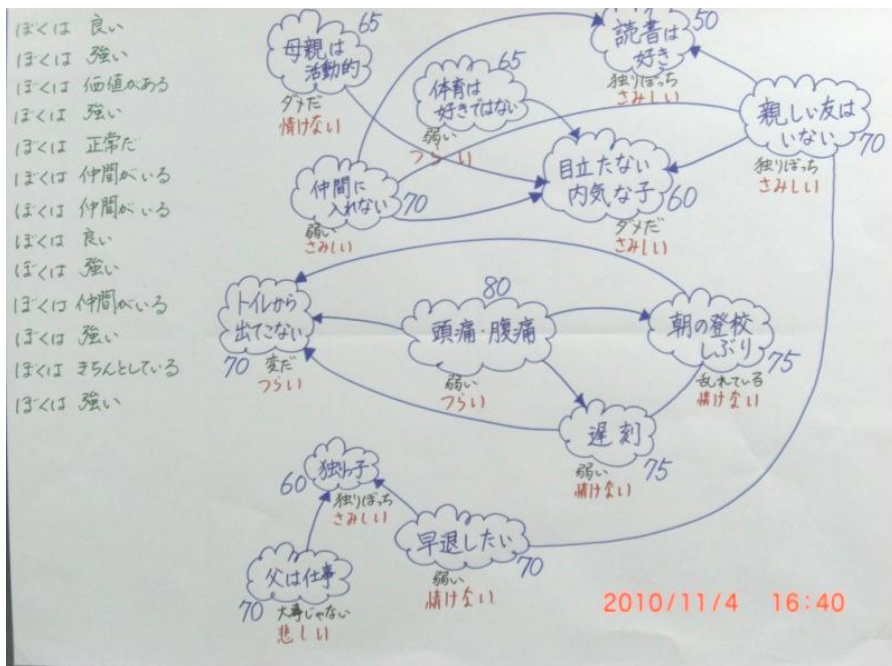 ぼくは 良い
ぼくは 強い
ぼくは 価値がある
ぼくは 強い
ぼくは 正常だ
ぼくは 仲間がいる
ぼくは 仲間がいる
ぼくは 良い
ぼくは 強い
ぼくは 仲間がいる
ぼくは 強い
ぼくは きちんとしている
ぼくは 強い
母親は
活動的
65
ダメだ
情けない
体育は
好きではない
65
弱い
つらい
読書は
好き
50
独りぼっち
さみしい
親しい友は
いない
70
独りぼっち
さみしい
仲間に
入れない
70
弱い
さみしい
目立たない
内気な子
60
ダメだ
さみしい
トイレから
出てこない
70
変だ
つらい
80
頭痛・腹痛
弱い
つらい
朝の登校
しぶり
75
乱れている
情けない
遅刻
75
弱い
情けない
独りっ子
60
独りぼっち
さみしい
早退したい
70
弱い
情けない
父は仕事
70
大事じゃない
悲しい
2010/11/4 16:40